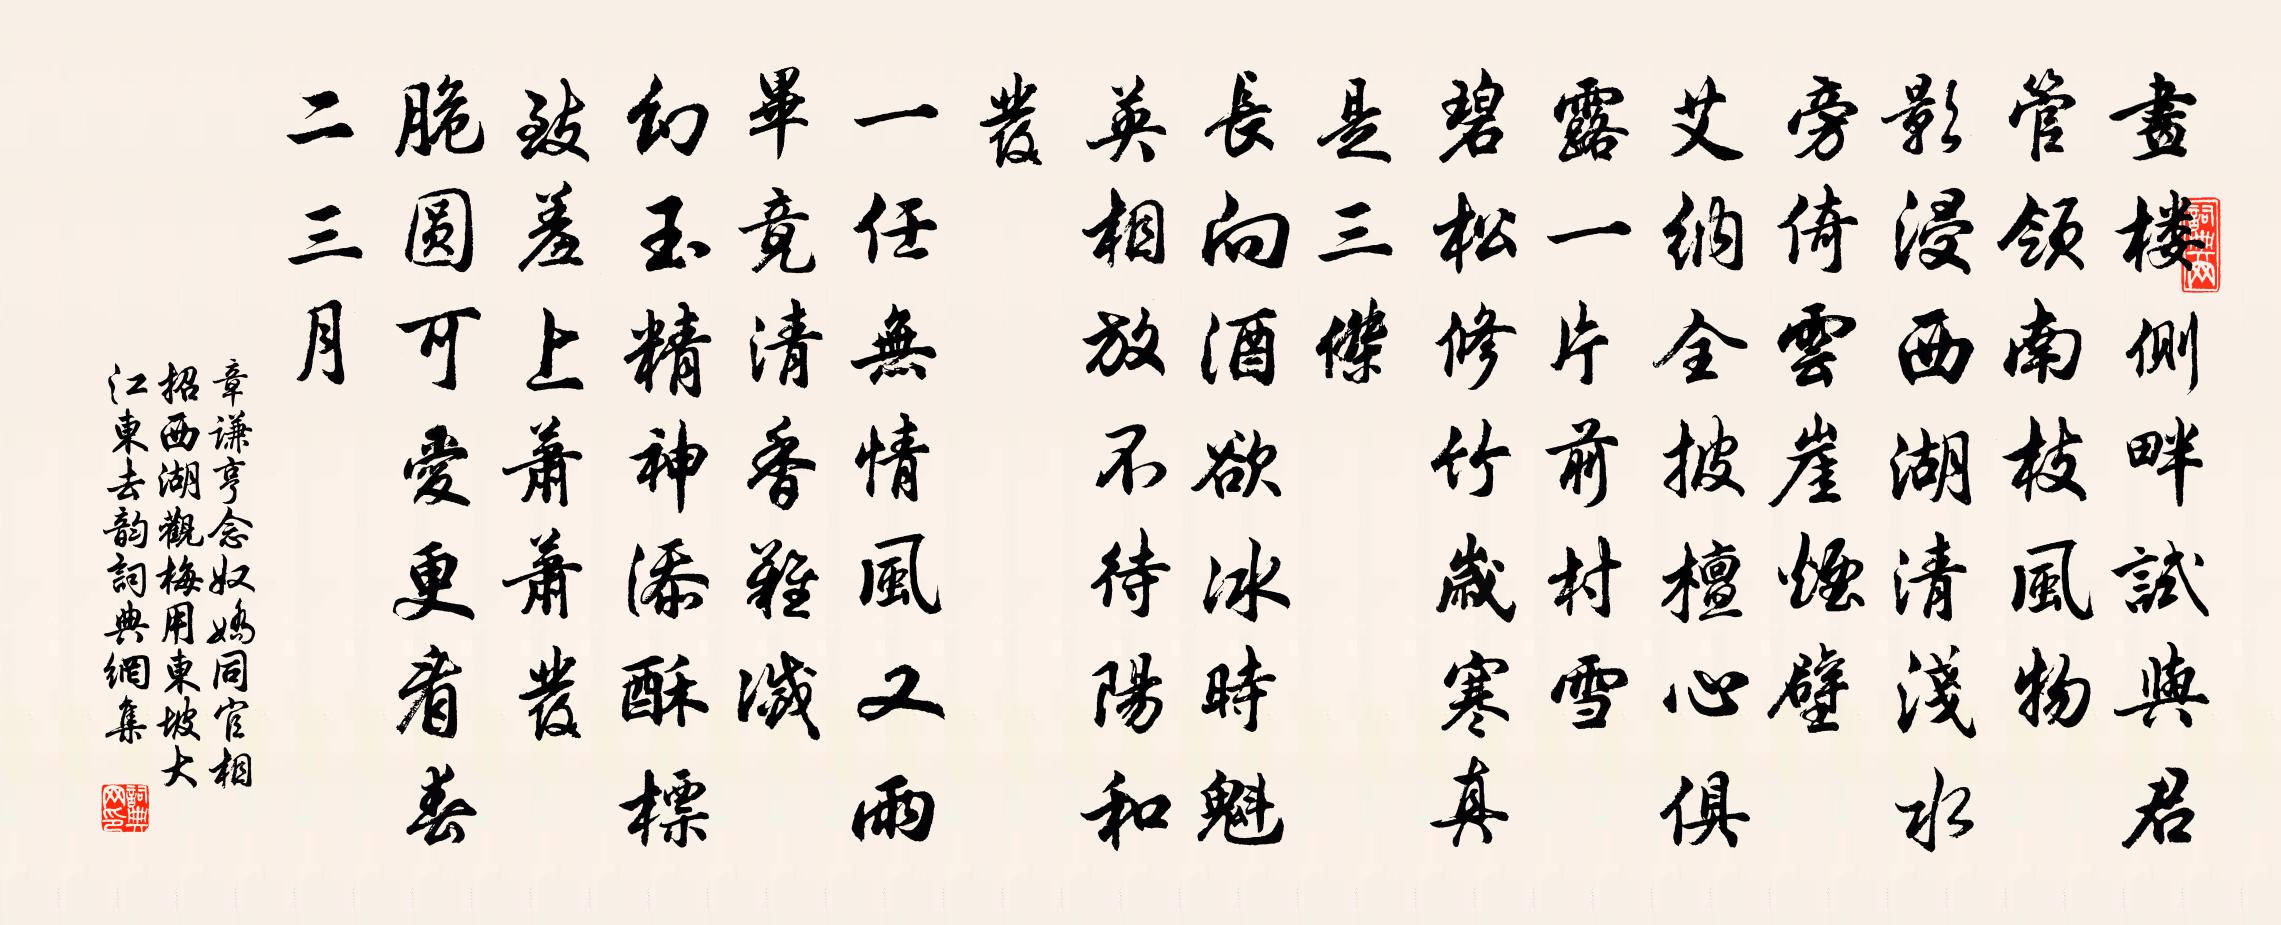 畫楼側畔試與君
管領南枝風物
影浸西湖清淺水
旁倚雲崖煙壁
艾納全披檀心俱
露一片前村雪
碧松修竹歲寒真
是三傑
長向酒欲冰時魁
英相放不待陽和
發
一任無情風又雨
畢竟清香難滅
幻玉精神添酥標
致羞上蕭蕭發
脆圆可愛更看春
二三月
章谦亨念奴嬌同官相
招西湖觀梅用東坡大
江東去韵詞典網集
詞典网
詞典网印